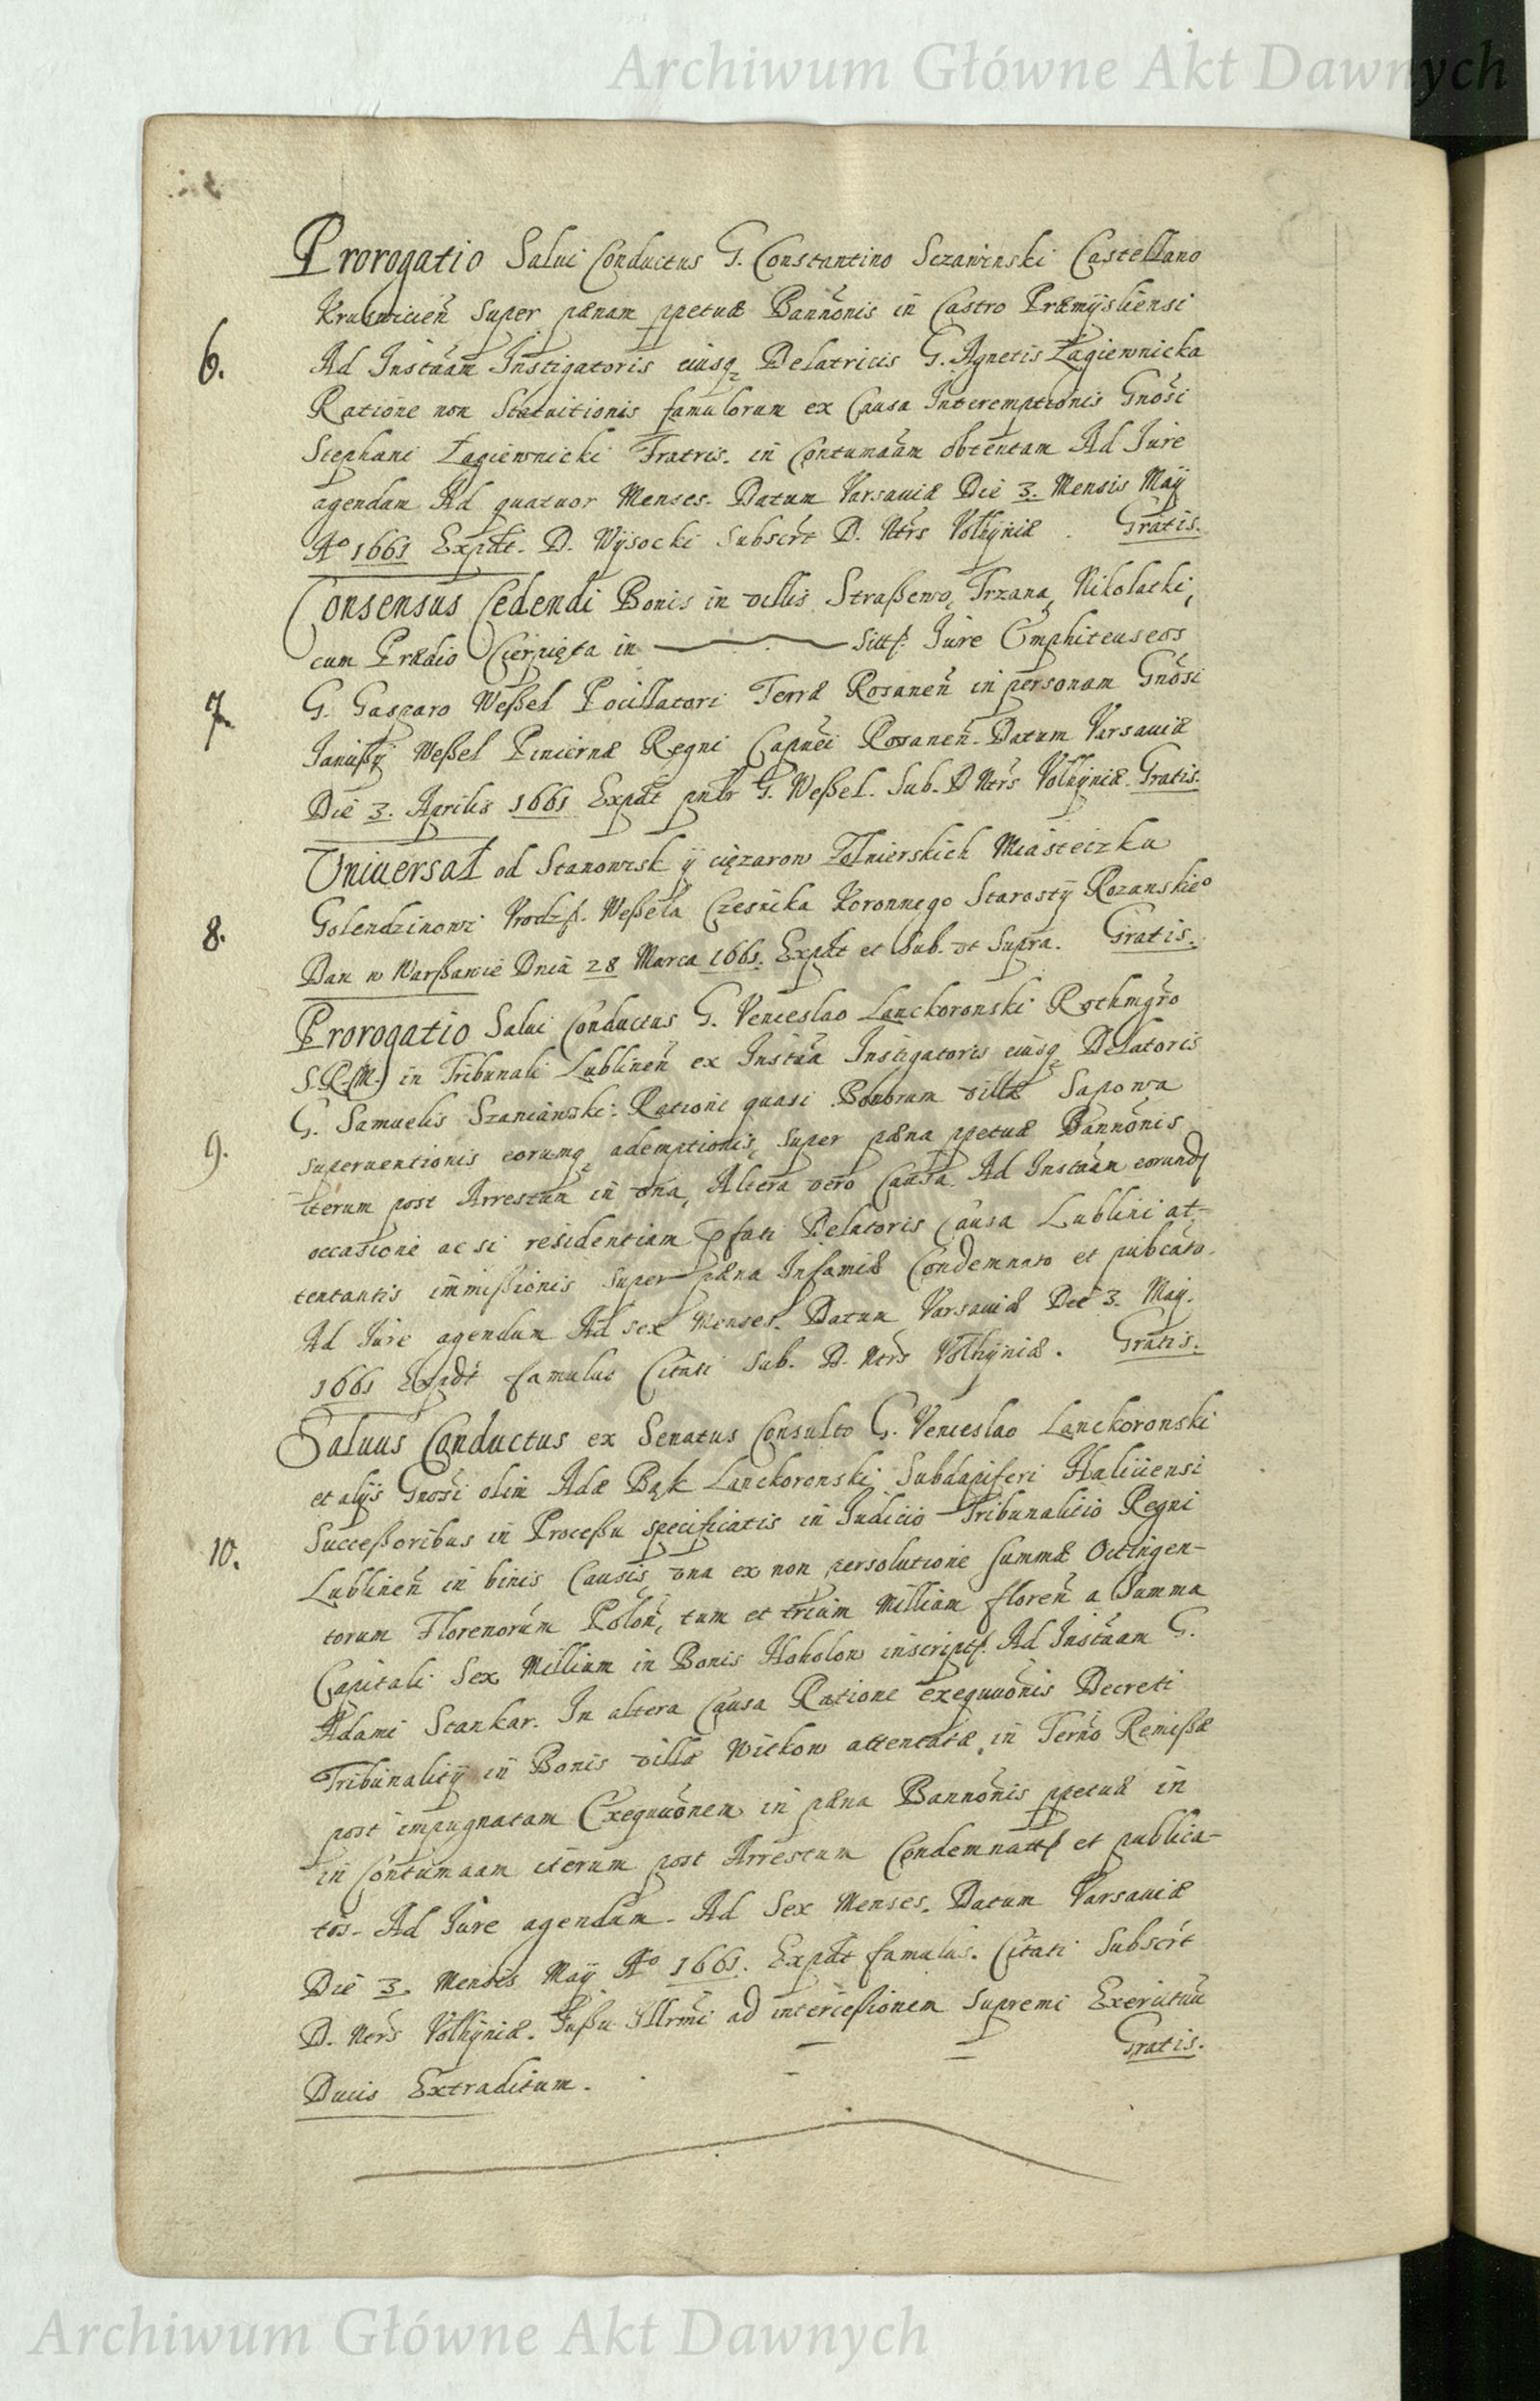 Archiwum Główne Akt Dawnych
Prorogatio Salui Conductus G. Constantino Sczawinski Castellano
Kruswicień Super pænam ppetuæ Bannōnis in Castro Præmÿsliensi
6. Ad Instām Instigatoris eiusq Delatricis G. Agnetis Łagiewnicka
Ratione non Statuitionis famulorum ex Causa Interemptionis Gnōsi
Stephani Łagiewnicki Fratris. in Contumaām obtentam Ad Jure
agendam Ad quatuor Menses. Datum Varsauiæ Die 3. Mensis Maÿ
Ao 1661 Expdt. D. Wÿsocki Subscrt D. Ntrs Volhÿniæ. Gratis.
Consensus Cedendi Bonis in villis Straßewo, Trzana, Nikolacki,
cum Prædio Cierpięta in sitt. Jure Emphiteuseos
7. G. Gasparo Weßel Pocillatori Terræ Rosaneñ in personam Gnōsi
Janußÿ Weßel Pincernæ Regni Capnēi Rosaneñ. Datum Varsauiæ
Die 3. Aprilis 1661 Expdt pntr G. Weßel. Sub. D Ntrs Volhÿniæ. Gratis.
Uniuersał od Stanowisk ÿ ciężarow Żołnierskich Miasteczku
8. Golendzinowi Vrodz. Weßela Czesnika Koronnego Starostÿ Rozanskieo
Dan w Warßawie Dnia 28 Marca 1661. Expdt et Sub. vt Supra. Gratis.
Prorogatio Salui Conductus G. Venceslao Lanckoronski Rothmgro
S.R.M. in Tribunali Lublineñ ex Instā Instigatoris eiusq Delatoris
G. Samuelis Szaniawski. Ratione quasi Bonorum villæ Sapowa
9. superuentionis eorumq ademptionis, super pæna ppetuæ Bannōnis
iterum post Arrestum in vna, Altera vero Causa. Ad Instām eorund
occasione ac si residentiam pfati Delatoris Causa Lublini at-
tentantis im̄ißionis super pæna Infamiæ Condemnato et pubcato.
Ad Jure agendum Ad sex Menses. Datum Varsauiæ Die 3. Maÿ.
1661 Expdt famulus Citati Sub. D. Ntrs Volhÿniæ. Gratis.
Saluus Conductus ex Senatus Consulto G. Venceslao Lanckoronski
et alijs Gnosi olim Adæ Bąk Lanckoronski Subdapiferi Haliciensi
Succeßoribus in Proceßu specificatis in Judicio Tribunalitio Regni
10. Lublineñ in binis Causis vna ex non persolutione summæ Octingen-
torum Florenorum Poloñ, tum et trium Millium floreñ a Summa
Capitali Sex Millium in Bonis Hoholow inscript. Ad Instām G.
Adami Stankar. In altera Causa Ratione exequuōnis Decreti
Tribunalitÿ in Bonis villæ Witkow attentatæ in Terno Remißæ
post impugnatam Exequuōnem in pæna Bannōnis ppetuæ in
in Contumaām iterum post Arrestum Condemnatt et publica-
tos. Ad Jure agendum. Ad Sex Menses. Datum Varsauiæ
Die 3. Mensis Maÿ Ao 1661. Expdt famulus. Citati Subscrt
D. Ntrs Volhÿniæ. Jußu Illrmi ad interceßionem Supremi Exercituū
Ducis Extraditum. Gratis.
Archiwum Główne Akt Dawnych